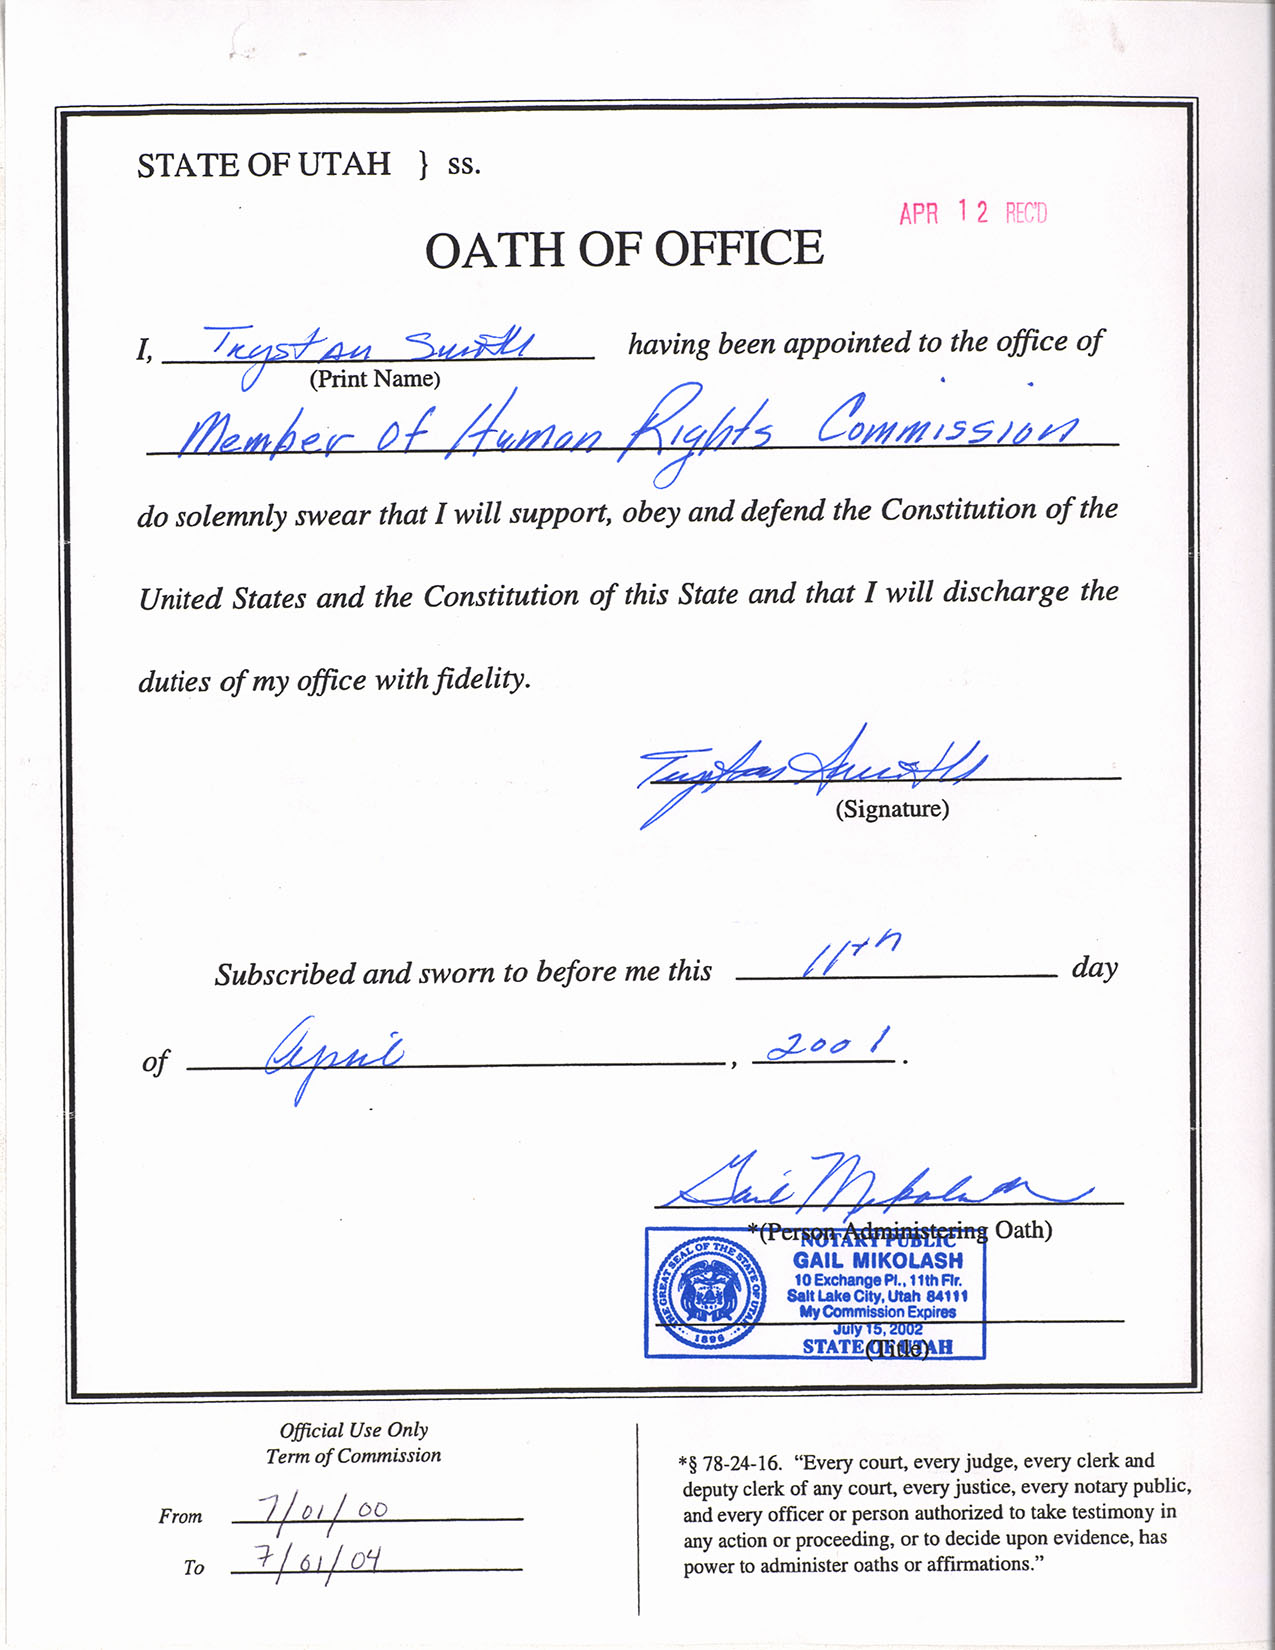 STATE OF UTAH } ss.
APR 12 REC'D
OATH OF OFFICE
I, Trystan Smith having been appointed to the office of
(Print Name)
Member of Human Rights Commission
do solemnly swear that I will support, obey and defend the Constitution of the
United States and the Constitution of this State and that I will discharge the
duties of my office with fidelity.
Trystan Smith
(Signature)
Subscribed and sworn to before me this 11th day
of April, 2001.
Gail Mikolash
*(Person Administering Oath)
NOTARY PUBLIC
GAIL MIKOLASH
10 Exchange Pl., 11th Flr.
Salt Lake City, Utah 84111
My Commission Expires
July 15, 2002
STATE OF UTAH
THE GREAT SEAL OF THE STATE OF UTAH
1896
(Title)
Official Use Only
Term of Commission
From 7/01/00
To 7/01/04
*§ 78-24-16. “Every court, every judge, every clerk and
deputy clerk of any court, every justice, every notary public,
and every officer or person authorized to take testimony in
any action or proceeding, or to decide upon evidence, has
power to administer oaths or affirmations.”